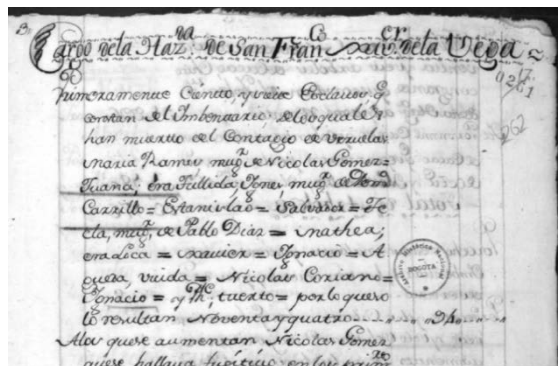 Cargo de la Haz.da de San Fran.co Xav.er de la Vega
Primeramente Ciento, y veinte Esclavos q.
constan del Imbentario, de los quales
han muerto del Contagio de Virуelas
Maria Ramos mug.r de Nicolas Gomez=
Juana; era Tullida; Ines mug.r de
Carrillo= Estanislao= Salvador= Te
cla, mug.r de Pablo Diaz= Mathea;
era Loca= Xavier= Ignacio= A
gueda, viuda= Nicolas Coriano=
Ignacio= y tuerto= por lo que so
lo resultan Noventa y quatro 94
A los que se aumentan Nicolas Gomez
que se hallava fugitivo en los
262
BOGOTA